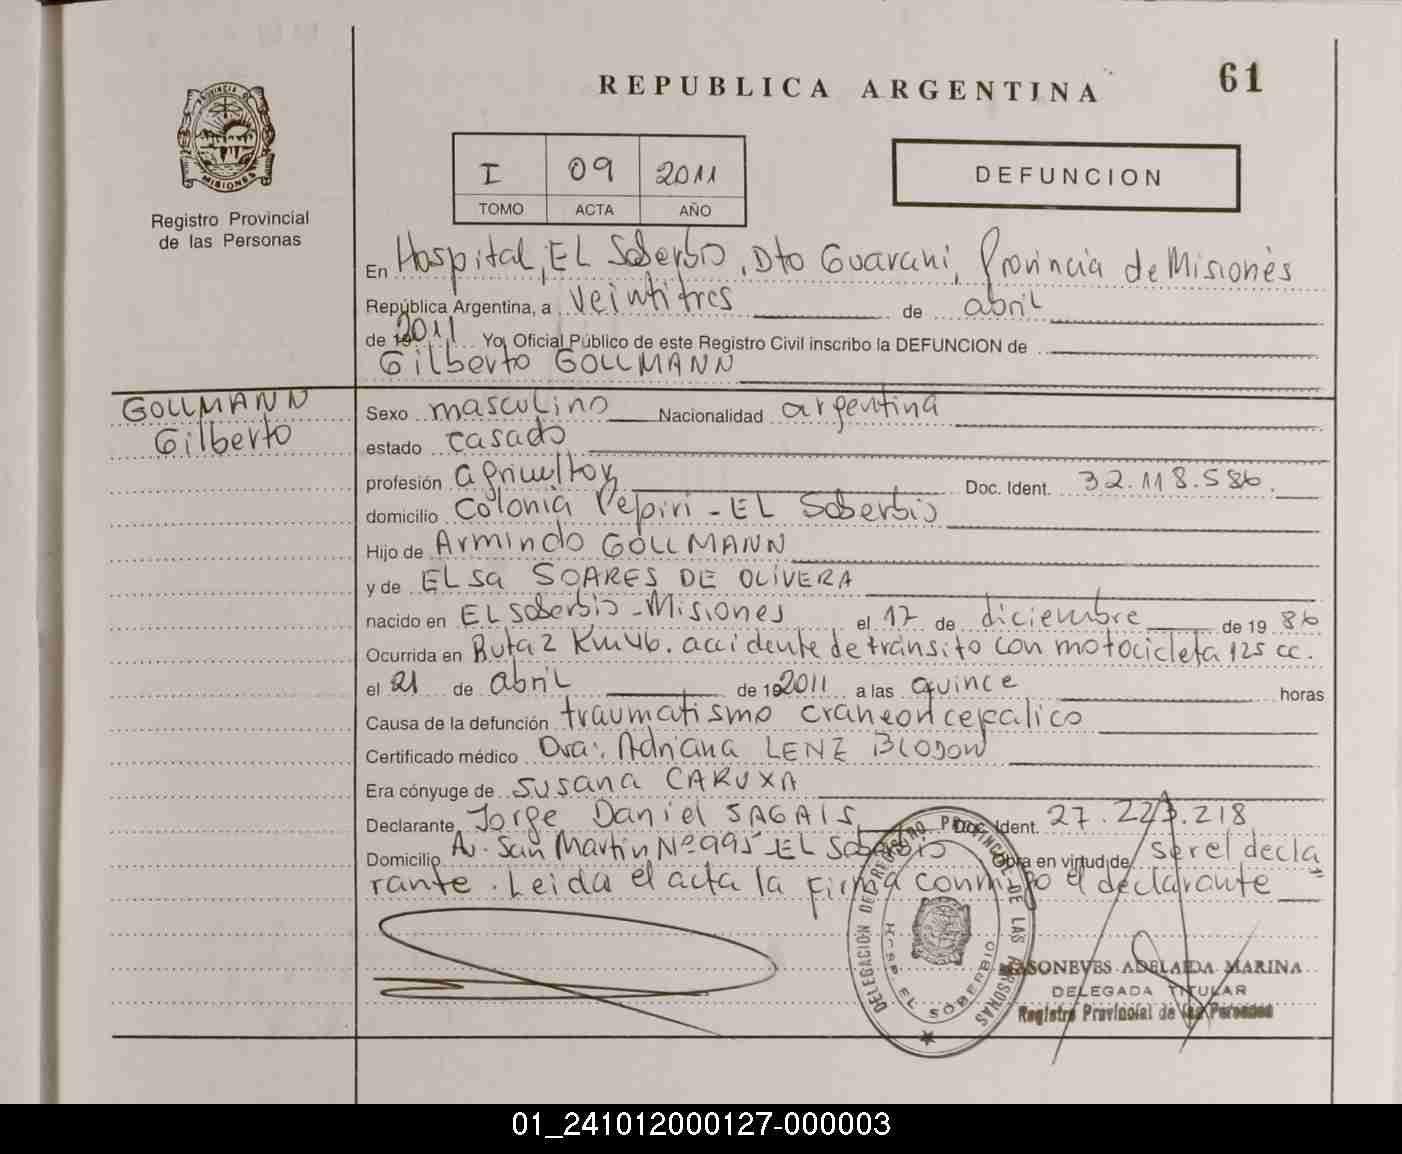 REPUBLICA ARGENTINA
61
PROVINCIA DE
MISIONES
Registro Provincial
de las Personas
I 09 2011
TOMO ACTA AÑO
DEFUNCION
En Hospital, EL Soberbio, Dto Guarani, Provincia de Misiones
República Argentina, a veintitres de abril
de 2011 Yo, Oficial Público de este Registro Civil inscribo la DEFUNCION de
Gilberto GOLLMANN
GOLLMANN
Gilberto
Sexo masculino Nacionalidad argentina
estado casado
profesión agricultor Doc. Ident. 32.118.586.
domicilio Colonia Pepiri - EL Soberbio
Hijo de Armindo GOLLMANN
y de ELSa SOARES DE OLIVERA
nacido en EL Soberbio - Misiones el 17 de diciembre de 19 86
Ocurrida en Ruta 2 Km 46. accidente de tránsito con motocicleta 125 cc.
el 21 de abril de 2011 a las quince horas
Causa de la defunción traumatismo craneoncefalico
Certificado médico Dra: Adriana LENZ BLODOW
Era cónyuge de Susana CARUXA
Declarante Jorge Daniel SAGAIS Doc. Ident. 27.223.218
Domicilio Av. San Martin Nº 995 - EL Soberbio Obra en virtud de ser el decla
rante. Leida el acta la firma conmigo el declarante
DELEGACIÓN DEL REGISTRO PROVINCIAL DE LAS PERSONAS
HOSP. EL SOBERBIO
MASONEVES ADELAIDA MARINA
DELEGADA TITULAR
Registro Provincial de las Personas
01_241012000127-000003